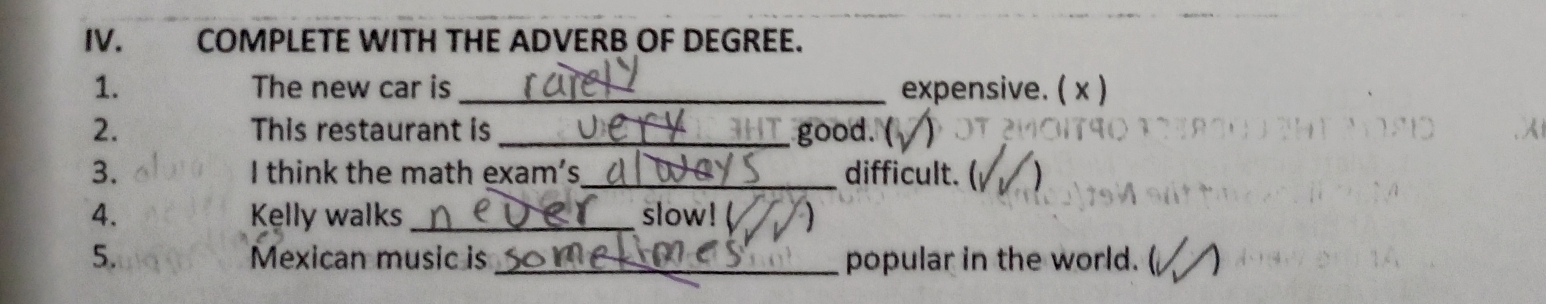 IV. COMPLETE WITH THE ADVERB OF DEGREE.
1. The new car is rarely expensive. ( x )
2. This restaurant is very good. (✓)
3. I think the math exam's always difficult. (✓✓)
4. Kelly walks never slow! (✓✓✓)
5. Mexican music is sometimes popular in the world. (✓✓)